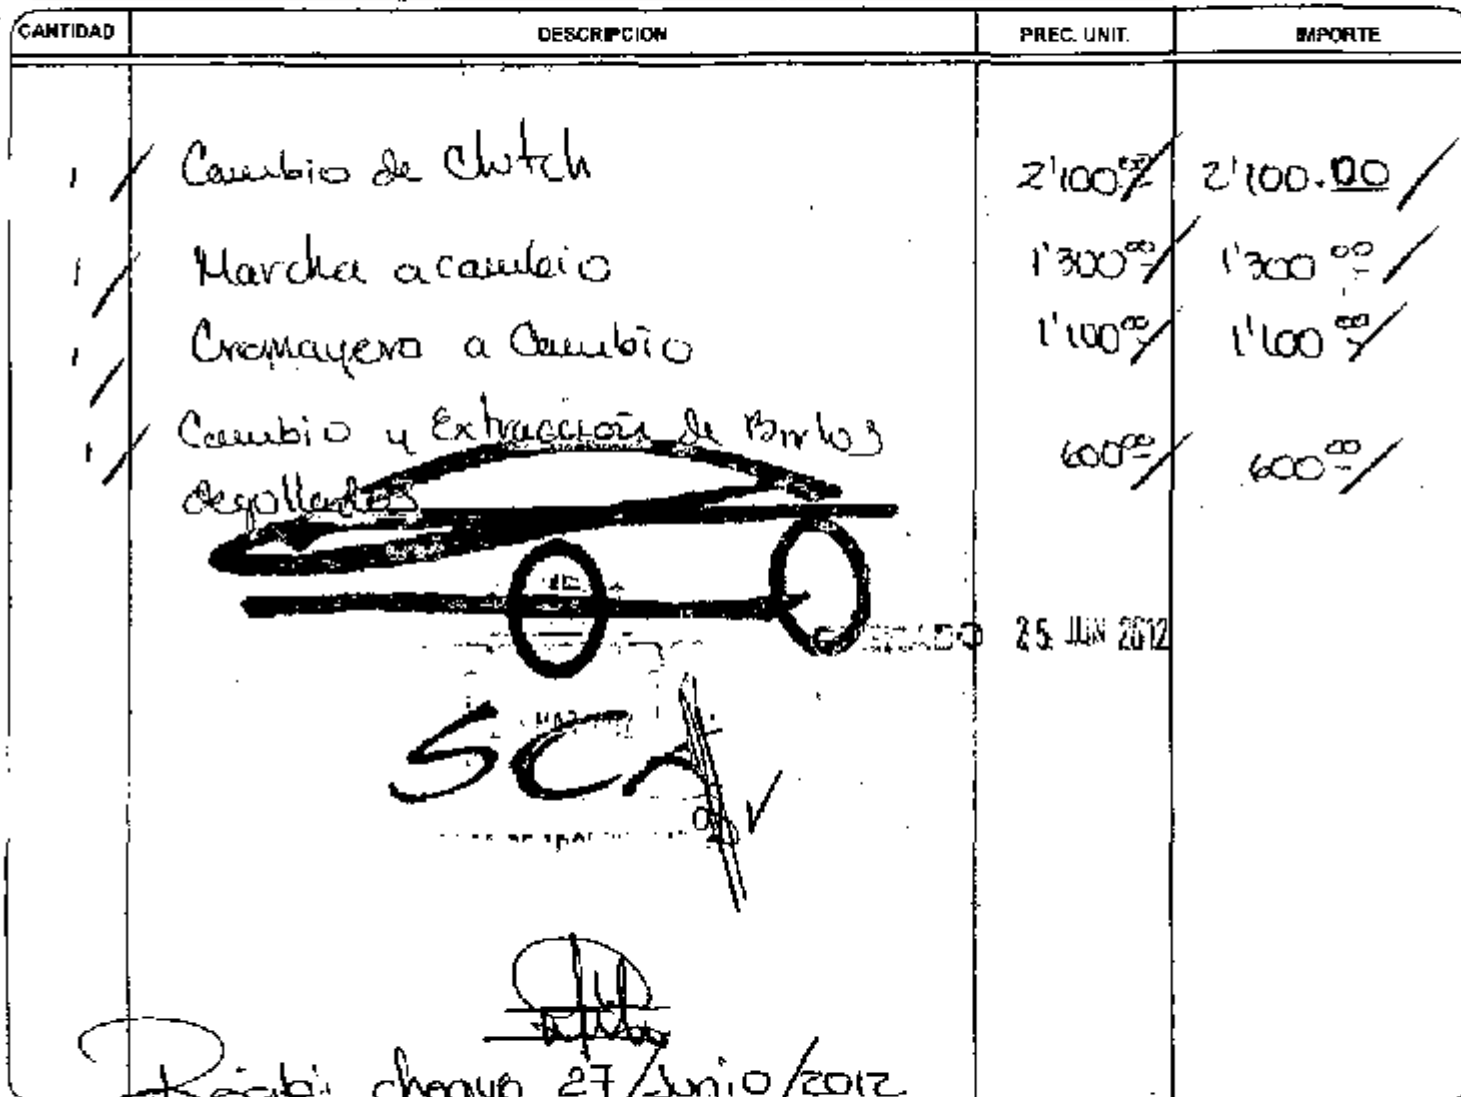 CANTIDAD DESCRIPCION PREC. UNIT. IMPORTE
1 Cambio de Clutch 2'100.00 2'100.00
1 Marcha a cambio 1'300.00 1'300.00
1 Cremayera a Cambio 1'100.00 1'100.00
1 Cambio y Extracción de Birlos 600.00 600.00
degollados
25 JUN 2012
SCA
Recibi cheque 27/Junio/2012